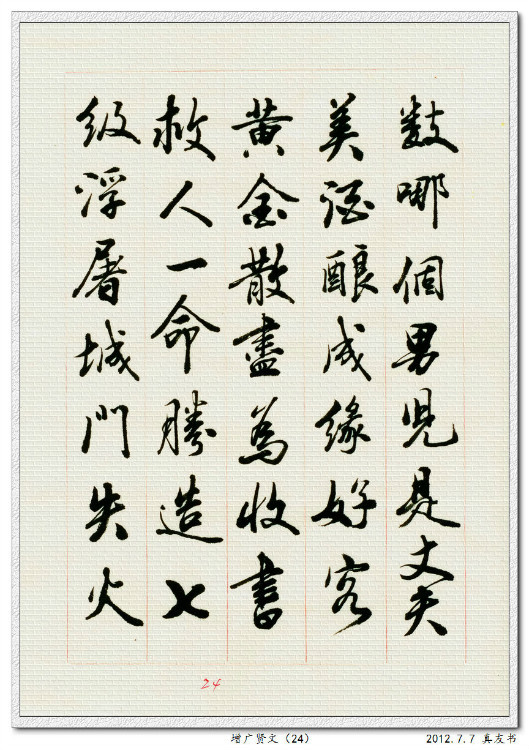 数哪個男兒是丈夫
美酒酿成缘好客
黄金散盡為收書
救人一命勝造七
级浮屠城門失火
24
增广贤文（24）
2012.7.7 真友书